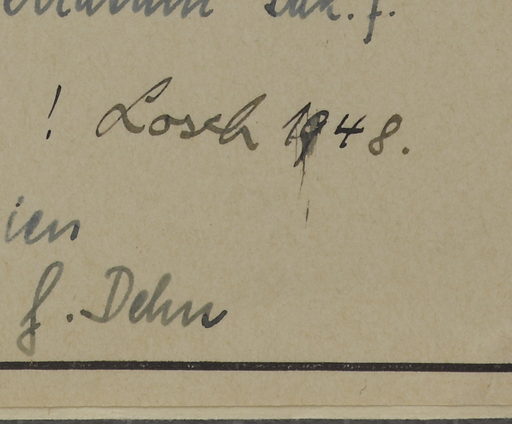 ! Losch 1948.
ien
J. Dehn